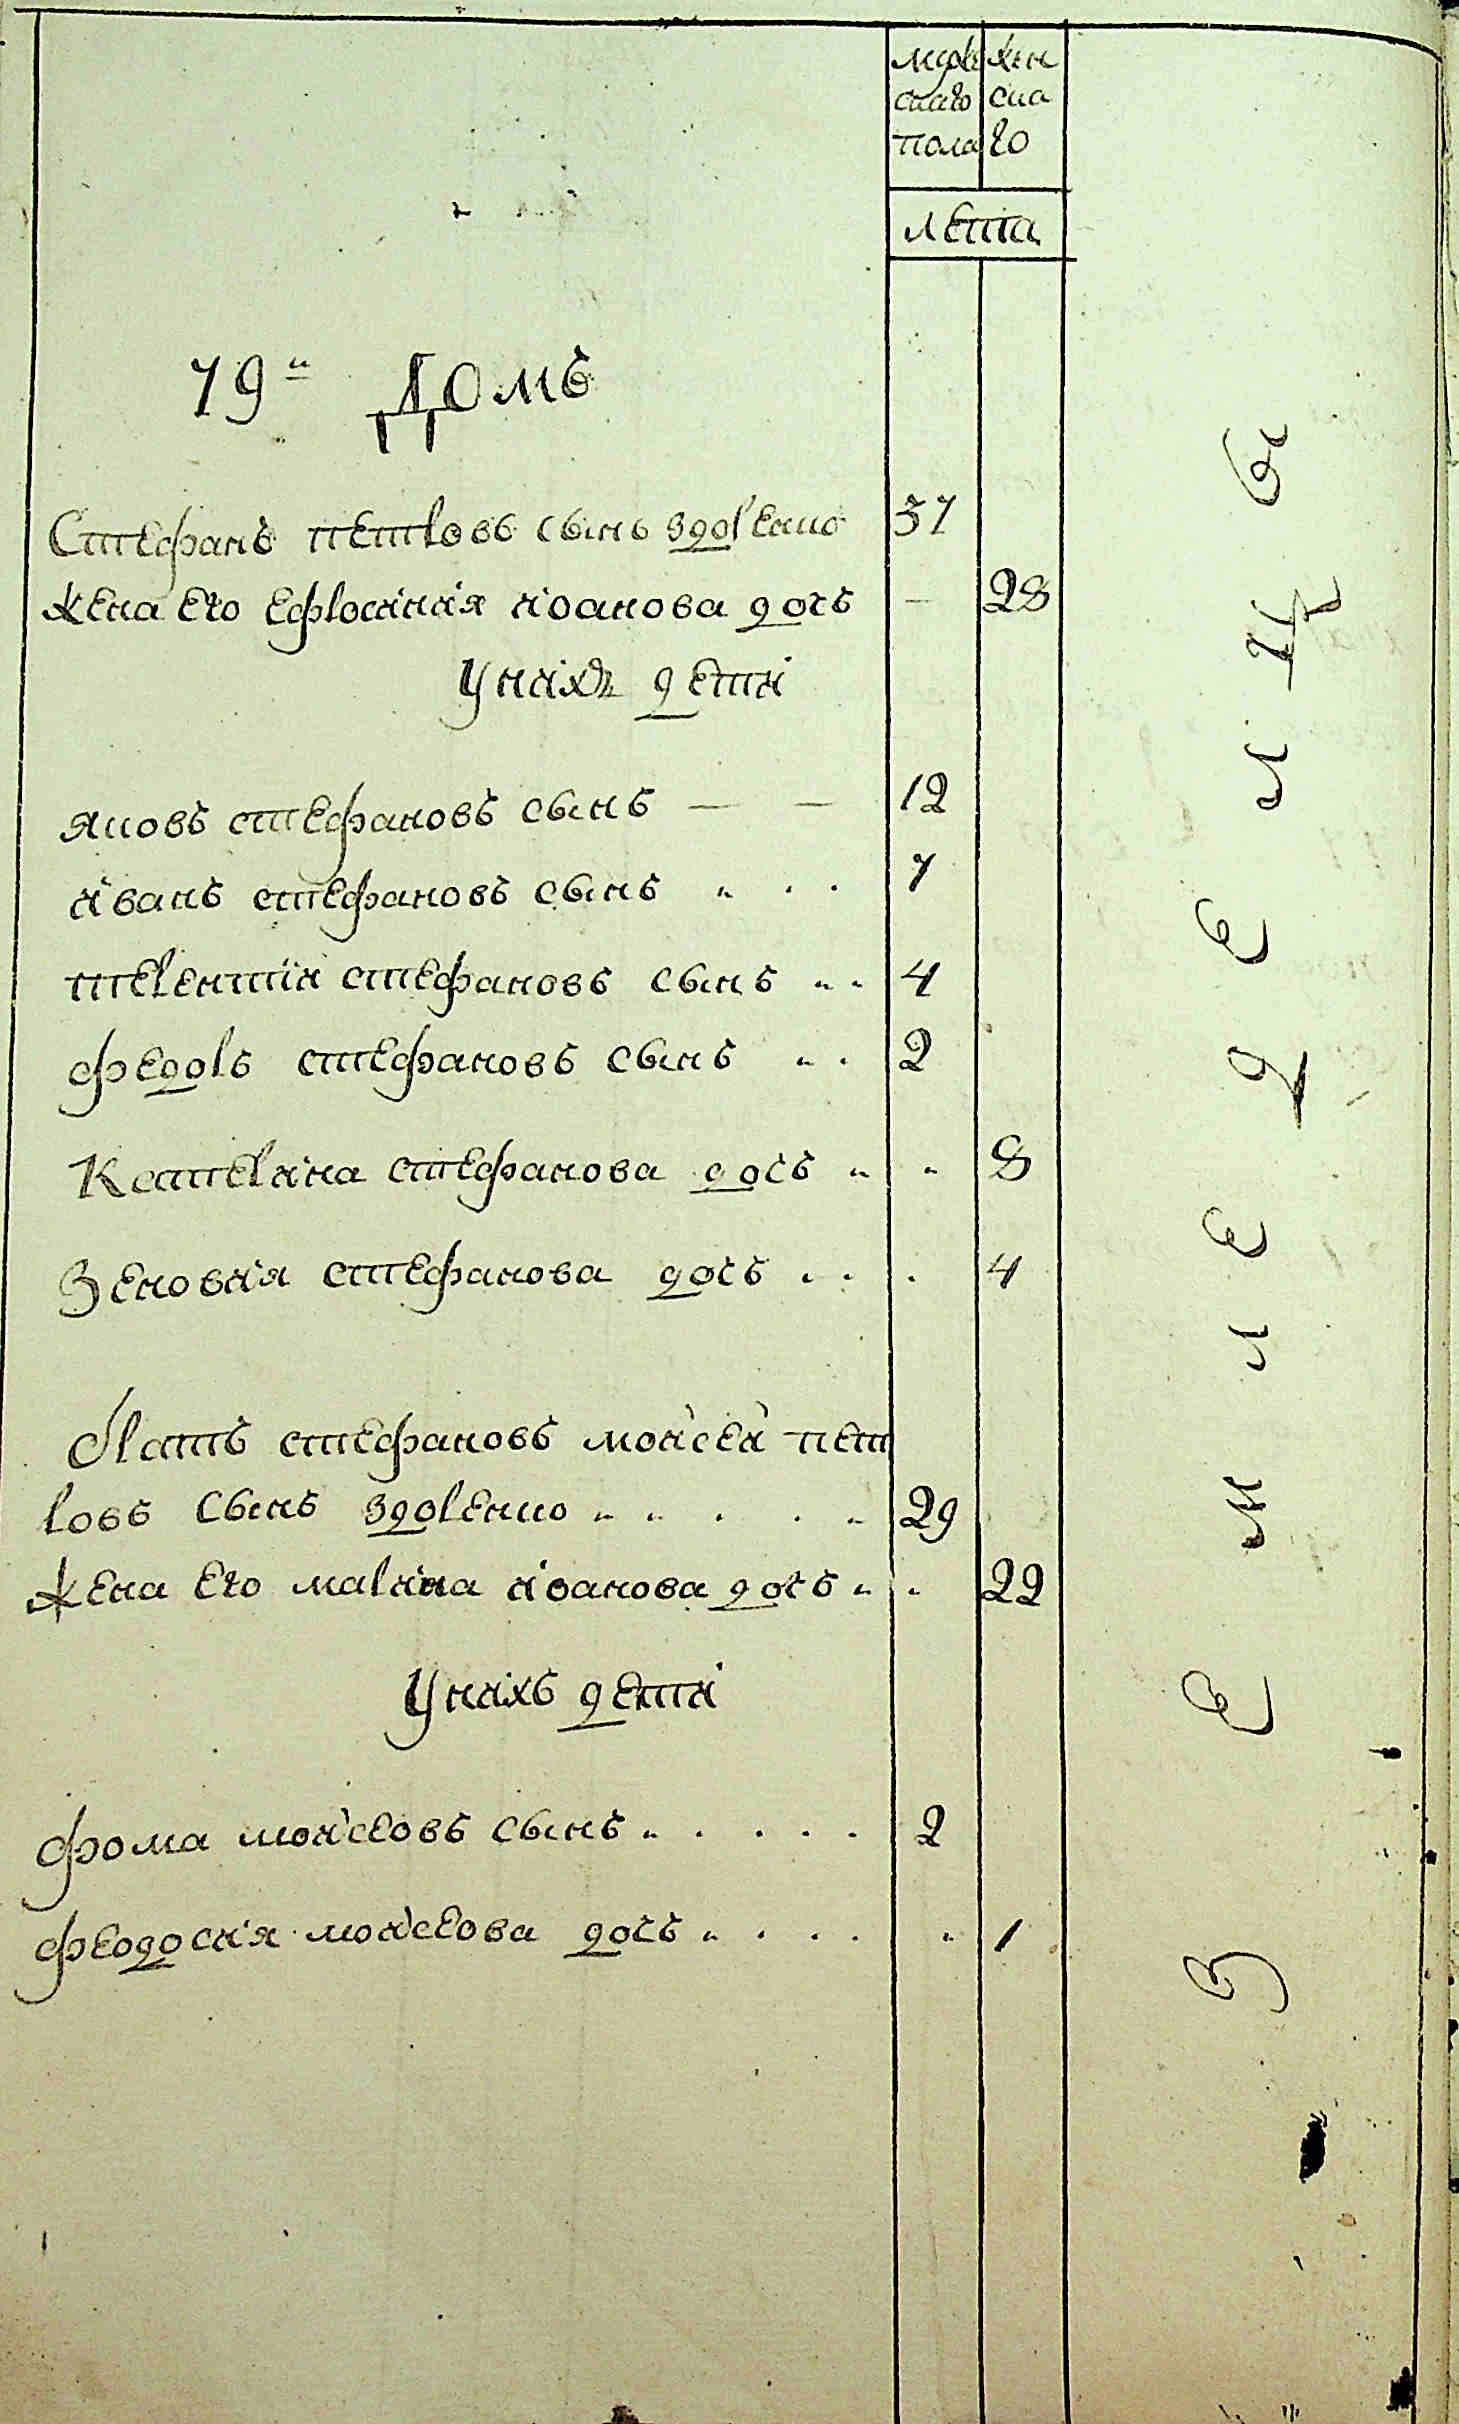 мужескаго пола
женскаго
лета
79й домъ
Стефанъ петровъ сынъ здоренко 37
жена его ефросиния иванова дочь — 28
У них дети
яковъ стефановъ сынъ — — 12
иванъ стефановъ сынъ 7
терентий стефановъ сынъ 4
федоръ стефановъ сынъ 2
Катерина стефанова дочь 8
Зеновия стефанова дочь 4
братъ стефановъ моисей пет
ровъ сынъ здоренко 29
жена его марина иванова дочь 22
У нихъ дети
фома моисеовъ сынъ 2
феодосия моисеова дочь 1
Земледелцы